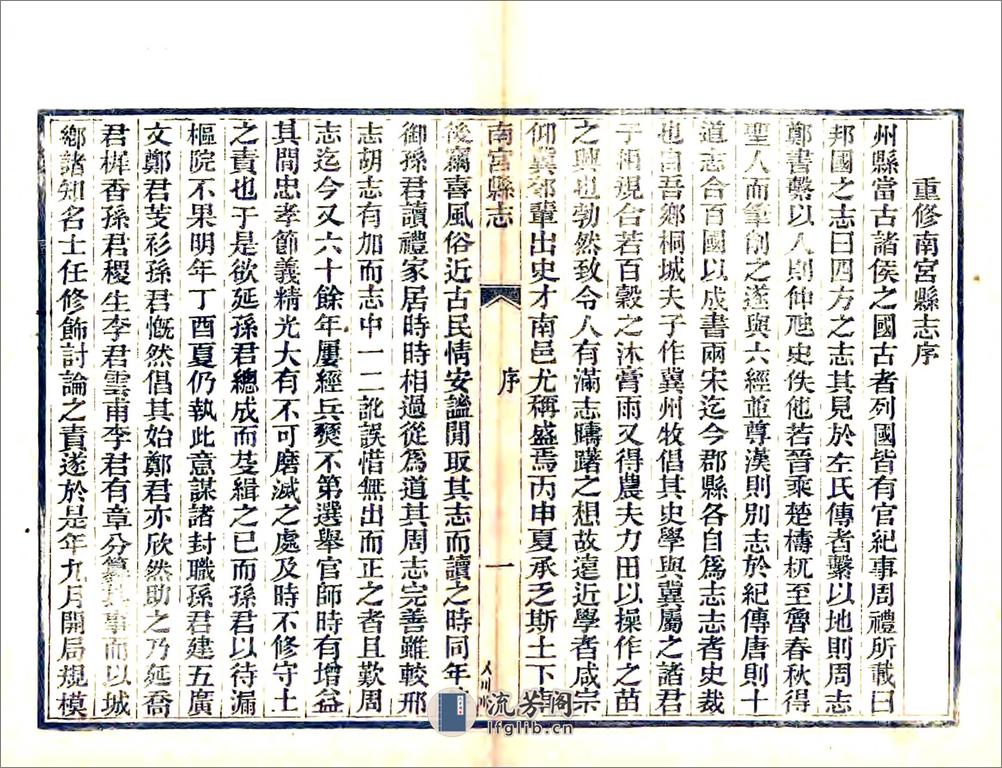 重修南宮縣志序
州縣當古諸侯之國古者列國皆有官紀事周禮所載曰
邦國之志曰四方之志其見於左氏傳者繫以地則周志
鄭書繫以人則仲虺史佚他若晉乘楚檮杌至魯春秋得
聖人而筆削之遂與六經並尊漢則別志於紀傳唐則十
道志合百國以成書兩宋迄今郡縣各自爲志志者史裁
也自吾鄉桐城夫子作冀州牧倡其史學與冀屬之諸君
子相規合若百穀之沐膏雨又得農夫力田以操作之苗
之興也勃然致令人有滿志躊躇之想故遠近學者咸宗
仰冀邻輩出史才南邑尤稱盛焉丙申夏承乏斯土下車
南宮縣志
序
一
後竊喜風俗近古民情安謐閒取其志而讀之時同年
御孫君讀禮家居時時相過從爲道其周志完善雖較邢
志胡志有加而志中一二訛誤惜無出而正之者且歎周
志迄今又六十餘年屢經兵燹不第選舉官師時有增益
其間忠孝節義精光大有不可磨滅之處及時不修守土
之責也于是欲延孫君總成而芟緝之已而孫君以待漏
樞院不果明年丁酉夏仍執此意謀諸封職孫君建五廣
文鄭君芰衫孫君慨然倡其始鄭君亦欣然助之乃延喬
君樨香孫君稷生李君雲甫李君有章分纂其事而以城
鄉諸知名士任修飾討論之責遂於是年九月開局規模
流芳阁
lfglib.cn